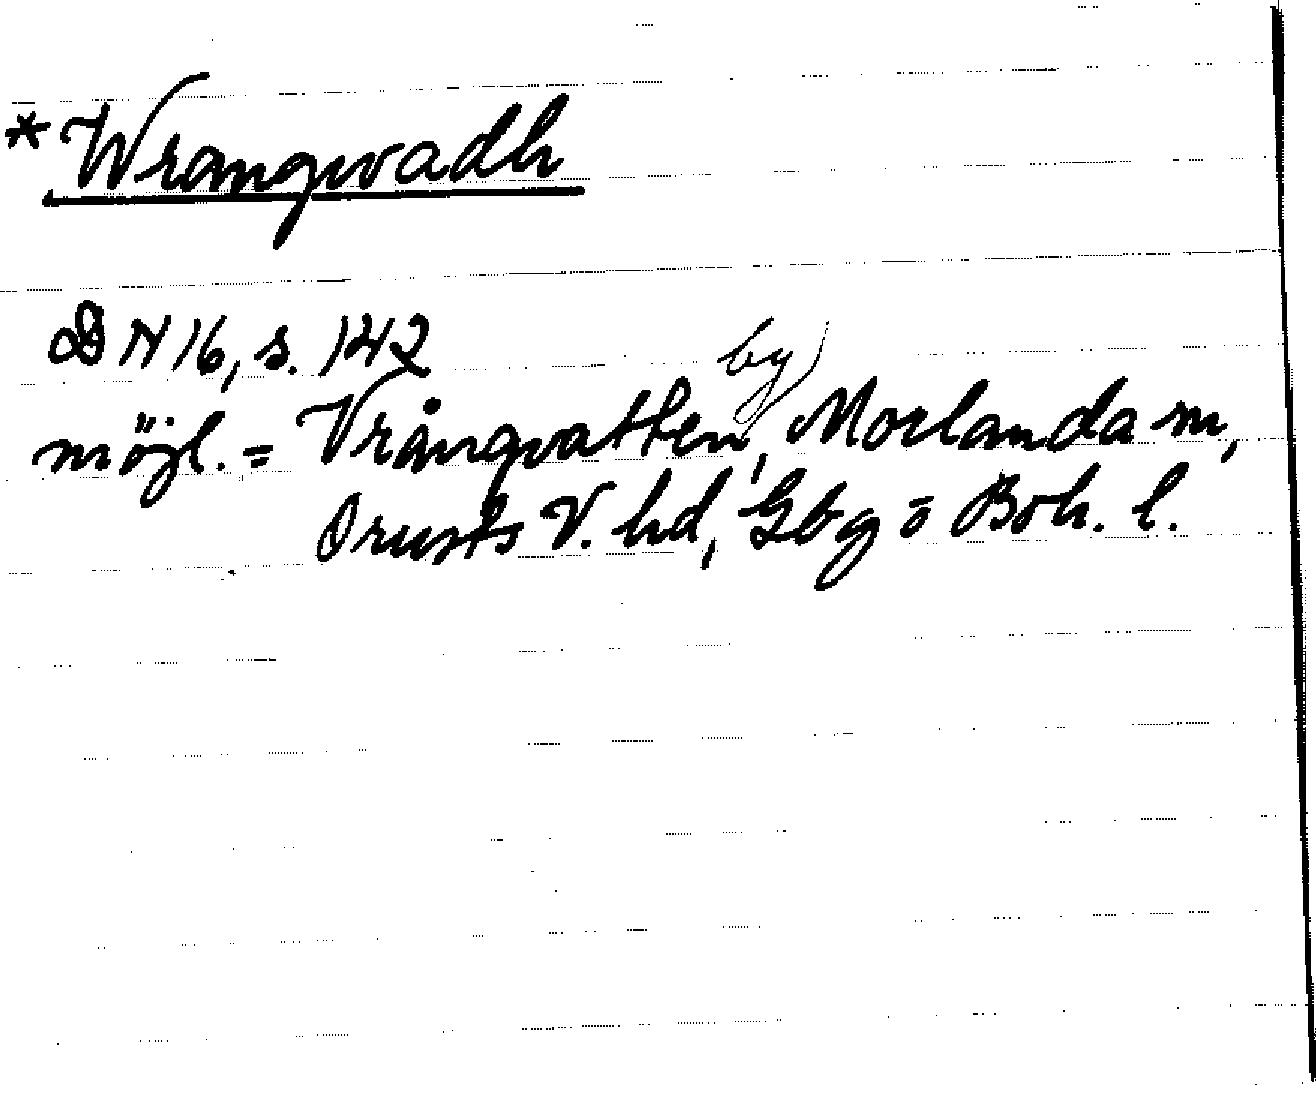 *Wrangwadh
DN 16, s. 142
möjl. = Vrångvatten, by, Morlanda sn,
Orusts V. hd, Gbg o Boh. l.